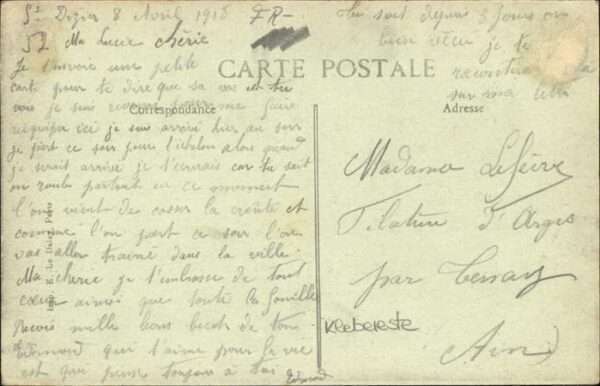 St Dizier 8 Avril 1918 FR-
52 Ma Lucie chérie
Je t'envoie une petite
carte pour te dire que sa va et tu
vois je suis revenu me faire
réquiper ici je suis arrivé hier au soir
je part ce soir pour l'échelon alors quand
je serait arrivé je t'écrirais car tu sait
on roule partout en ce moment
l'on vient de casser la croûte et
comme l'on part ce soir l'on
vas aller trainé dans la ville.
Ma chérie je t'embrasse de tout
cœur ainsi que toute la famille
Reçois mille bons becots de ton
Edmond qui t'aime pour la vie
et qui pense toujours à toi Edmond
Tu sait depuis 3 jours on
bien je te
racontera
sur ma
CARTE POSTALE
Correspondance
Adresse
Madame Lefèvre
Filature D'Arges
par Tenay
Ain
Klebereste